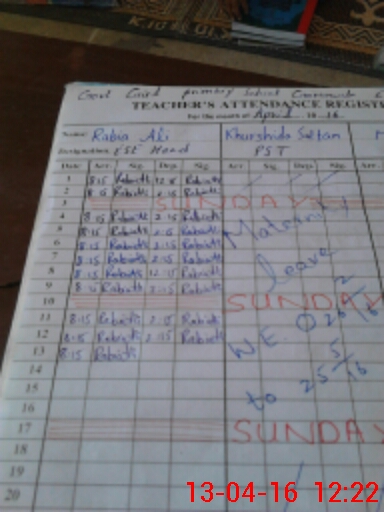 Govt Girls primary School
TEACHER'S ATTENDANCE REGIST
For the month of April 2016
Name: Rabia Ali Khurshida Sultan
Designation: EST Head PST
Date Arr. Sig. Dep. Sig. Arr. Sig. Dep. Sig.
1 8:15 Rabia
2 8:15 Rabia
3 SUNDAY
4 8:15 Rabia 2:15 Rabia Maternity
5 8:15 Rabia 2:15 Rabia
6 8:15 Rabia 2:15 Rabia leave
7 8:15 Rabia 2:15 Rabia
8 8:15 Rabia 12:15 Rabia
9 8:15 Rabia 2:15 Rabia
10 SUNDAY
11 8:15 Rabia 2:15 Rabia W.E.O 26/2/16
12 8:15 Rabia 2:15 Rabia
13 8:15 Rabia to 25/5/16
14
15
16
17 SUNDAY
18
19
20
13-04-16 12:22